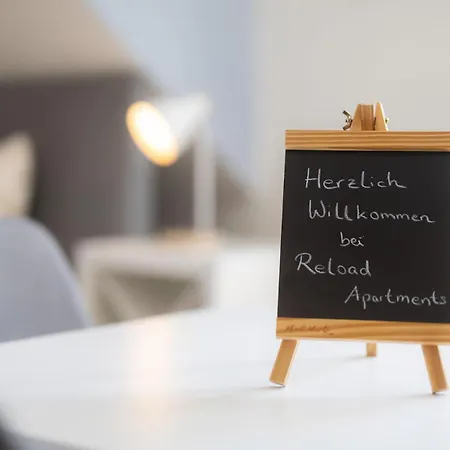 Herzlich
Willkommen
bei
Reload
Apartments